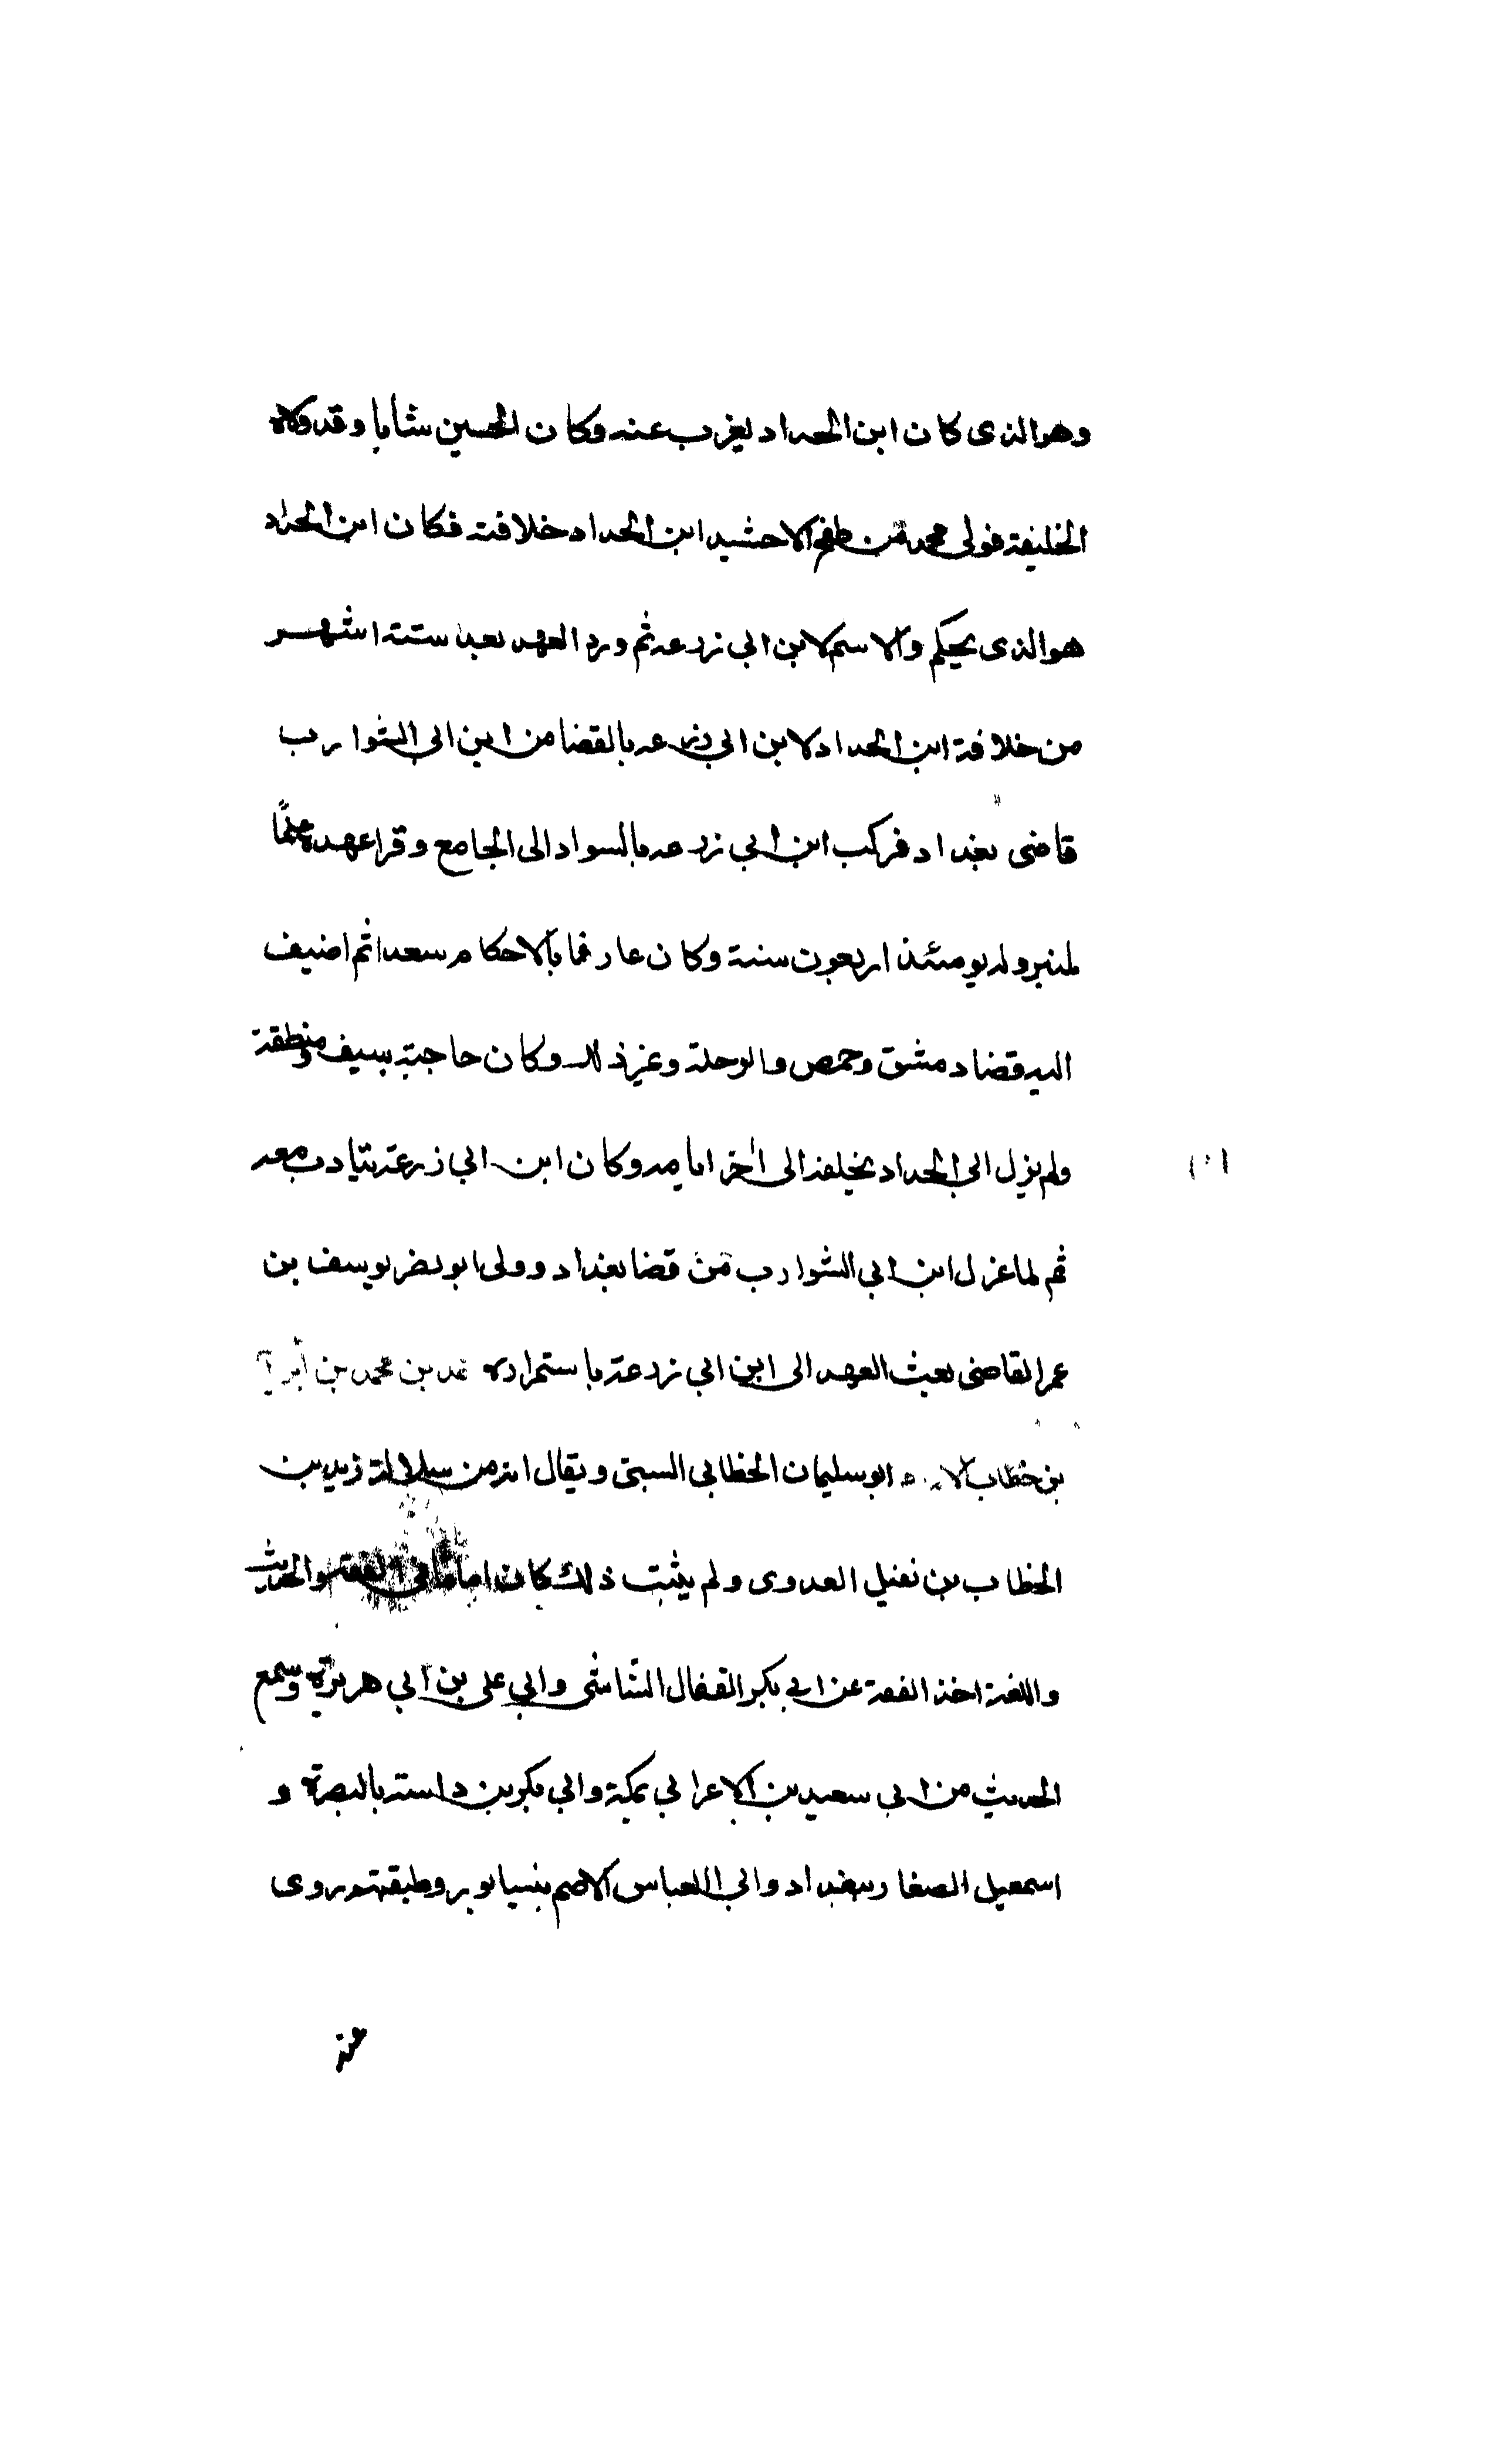 وهو الذى كان ابن الحداد يغرب عنه وكان الحسين شابا وقد ولاه
الخليفة فولى محمد بن طغج الاخشيد ابن الحداد خلافته فكان ابن الحداد
هو الذى يحكم والاسم لابن ابي زرعه ثم ورد العهد بعد ستة اشهر
من خلافة ابن الحداد لابن ابي زرعه بالقضا من ابن ابي الشوارب
قاضى بغداد فركب ابن ابي زرعه بالسواد الى الجامع وقرا عهده على
المنبر وله يومئذ اربعون سنة وكان عارفا بالاحكام سعدا ثم اضيف
اليه قضا دمشق وحمص والرملة وغير ذلك وكان حاجبة بسيف ومنطقة
ولم يزل ابن الحداد يخلفه الى اخر ايامه وكان ابن ابي زرعة يتادب معه
ثم لما عزل ابن ابي الشوارب من قضا بغداد وولى ابو نصر يوسف بن
عمر القاضى بعث العهد الى ابن ابي زرعة باستمراره حمد بن محمد بن ابر
بن خطاب الا ابو سليمان الخطابي البستى ويقال انه من سلالة زيد بن
الخطاب بن نفيل العدوى ولم يثبت ذلك كان اماما في الفقه والحديث
واللغة اخذ الفقة عن ابي بكر القفال الشاشى وابي على بن ابي هريرة وسمع
الحديث من ابي سعيد بن الاعرابي بمكة وابي بكر بن داسته بالبصرة و
اسمعيل الصفار ببغداد وابي العباس الاصم بنيسابور وطبقتهم وروى
عنه